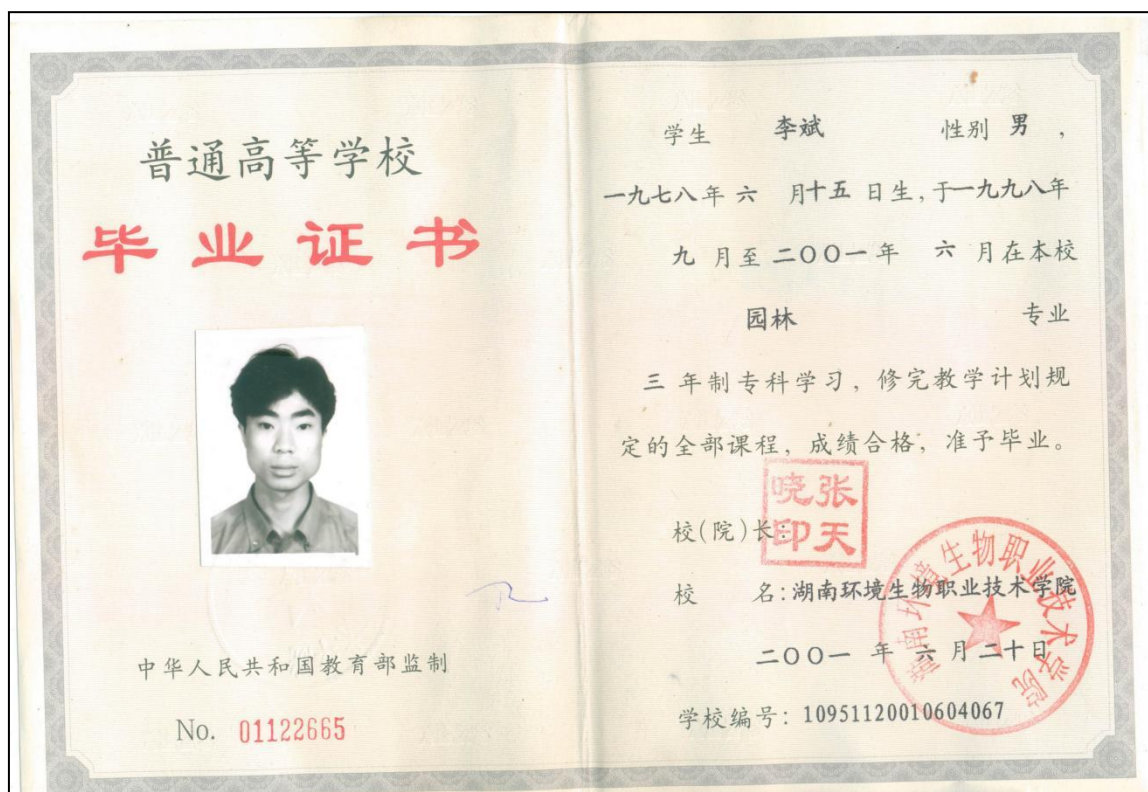 普通高等学校
毕业证书
中华人民共和国教育部监制
No. 01122665
学生 李斌 性别 男，
一九七八年 六 月十五 日生，于一九九八年
九 月至 二〇〇一年 六 月在本校
园林 专业
三 年制专科学习，修完教学计划规
定的全部课程，成绩合格，准予毕业。
校(院)长：
张天晓印
校 名：湖南环境生物职业技术学院
湖南环境生物职业技术学院
二〇〇一 年 六 月二十日
学校编号：10951120010604067